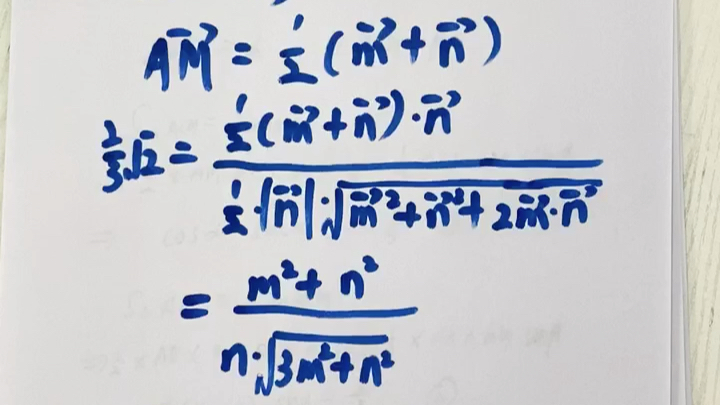 AM⃗ = 1/2 (m⃗ + n⃗)
2/3 √2 = (1/2 (m⃗ + n⃗) · n⃗) / (1/2 · |n⃗| · √(m⃗² + n⃗² + 2m⃗ · n⃗))
= (m² + n²) / (n · √(3m² + n²))